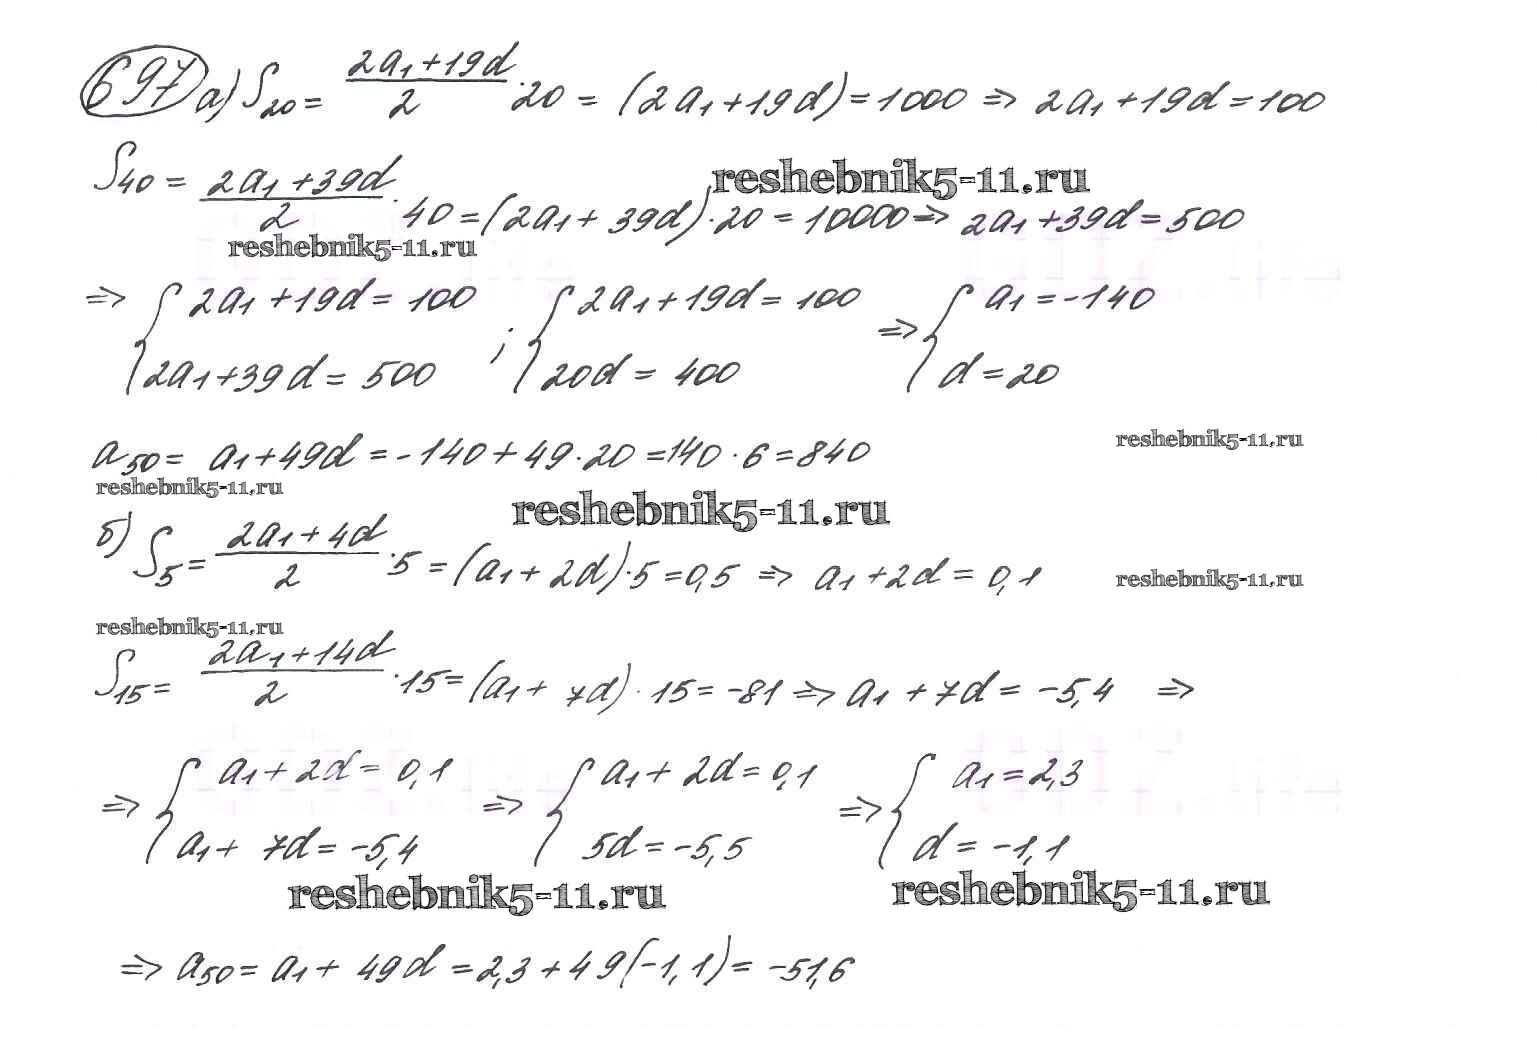 697 а) S₂₀ = (2a₁+19d)/2 · 20 = (2a₁+19d) = 1000 ⇒ 2a₁+19d = 100
S₄₀ = (2a₁+39d)/2 · 40 = (2a₁+39d)·20 = 10000 ⇒ 2a₁+39d = 500
reshebnik5-11.ru
reshebnik5-11.ru
⇒ { 2a₁+19d = 100 ; { 2a₁+19d = 100 ⇒ { a₁ = -140
2a₁+39d = 500 20d = 400 d = 20
a₅₀ = a₁+49d = -140+49·20 = 140·6 = 840
reshebnik5-11.ru
reshebnik5-11.ru
reshebnik5-11.ru
б) S₅ = (2a₁+4d)/2 · 5 = (a₁+2d)·5 = 0,5 ⇒ a₁+2d = 0,1
reshebnik5-11.ru
reshebnik5-11.ru
S₁₅ = (2a₁+14d)/2 · 15 = (a₁+7d)·15 = -81 ⇒ a₁+7d = -5,4 ⇒
⇒ { a₁+2d = 0,1 ⇒ { a₁+2d = 0,1 ⇒ { a₁ = 2,3
a₁+7d = -5,4 5d = -5,5 d = -1,1
reshebnik5-11.ru
reshebnik5-11.ru
⇒ a₅₀ = a₁+49d = 2,3+49(-1,1) = -51,6